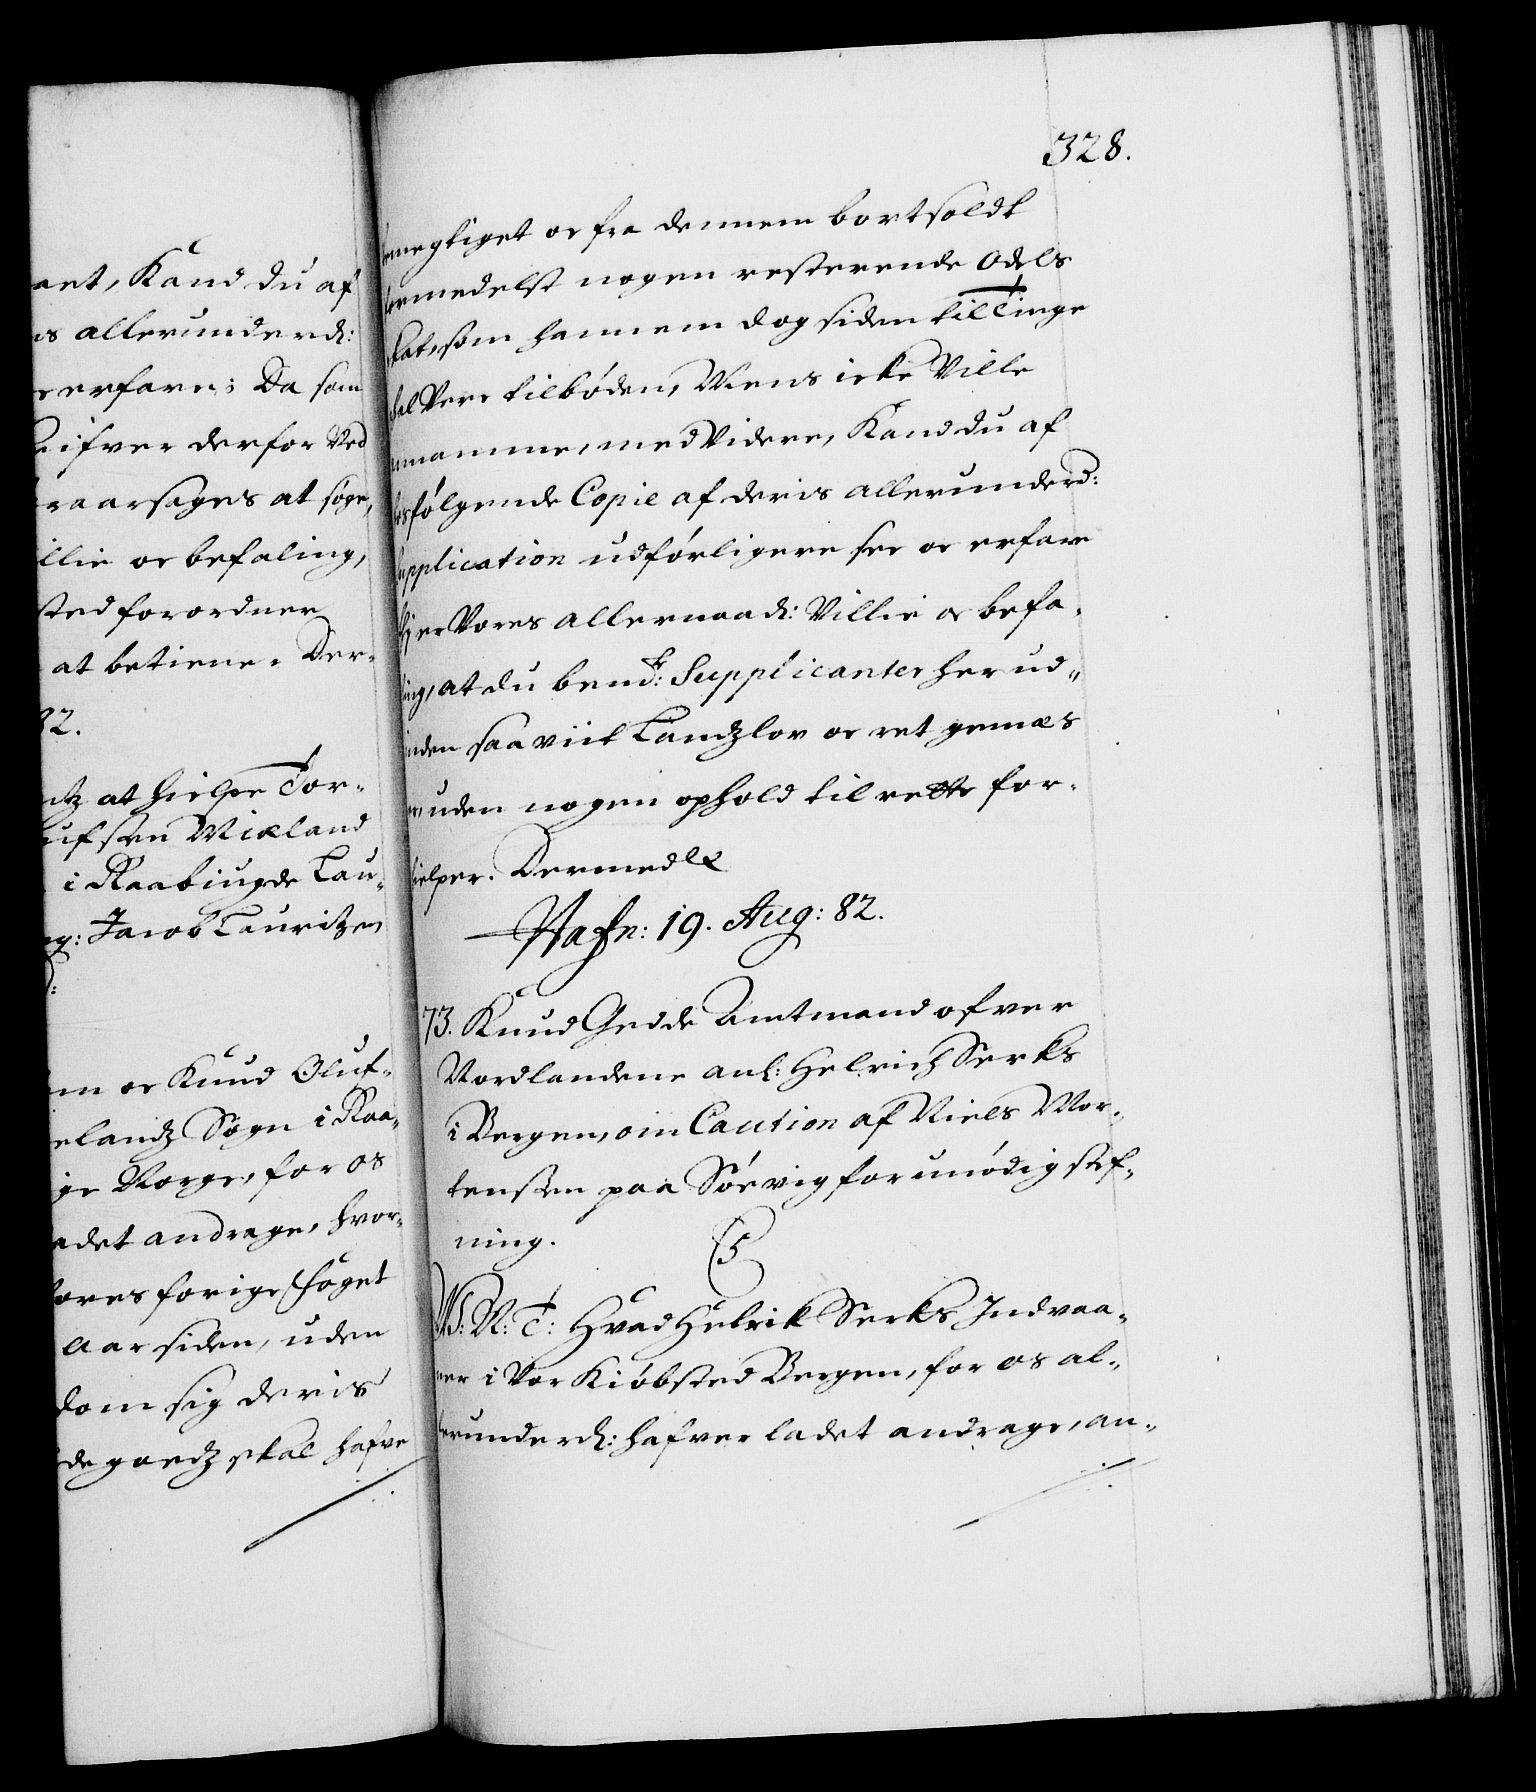 aet, Kand du af
is allerunderd:
erfare; Da som
derfor Ved
raarsages at søge,
illie oc befaling,
sted forordner
at betiene. Der-
82.
at hielpe Tor-
ufsen Miæland
i Raabiugde Lau-
Jacob Lauritzen
m oc Knud Oluf-
elandz Sogn i Raa-
ge Norge, for os
adet andrage, hvor-
vores forige Foget
aar siden, uden
dom sig deris
degoedz skal hafve
328.
megtiget oc fra dennem bortsoldt
formedelst nogen resterende Odels
skat, som hannem dog siden til Tinge
skal Vere tilbøden, Mens icke Ville
annamme, med Videre, Kand du af
hosfølgende Copie af deris allerunderd:
supplication udførligere see oc erfare
Thj er Vores allernaad: Villie oc befa-
ling, at du bemd:te Supplicanter her ud-
inden saaviit Landzlov oc ret gemæs
er, uden nogen ophold til rette for-
hielper. Dermed &
Hafn: 19. Aug: 82.
73. Knud Gedde Amtmand ofver
Nordlandene anl: Helrich Serks
i Bergen, om Caution af Niels Mor-
tensen paa Sørvig for unødig stef-
ning.
C5
W: N: T: Hvad Hulrik Serks Indvaa-
ner i Vor Kiøbsted Bergen, for os al-
lerunderd: hafver ladet andrage, an-